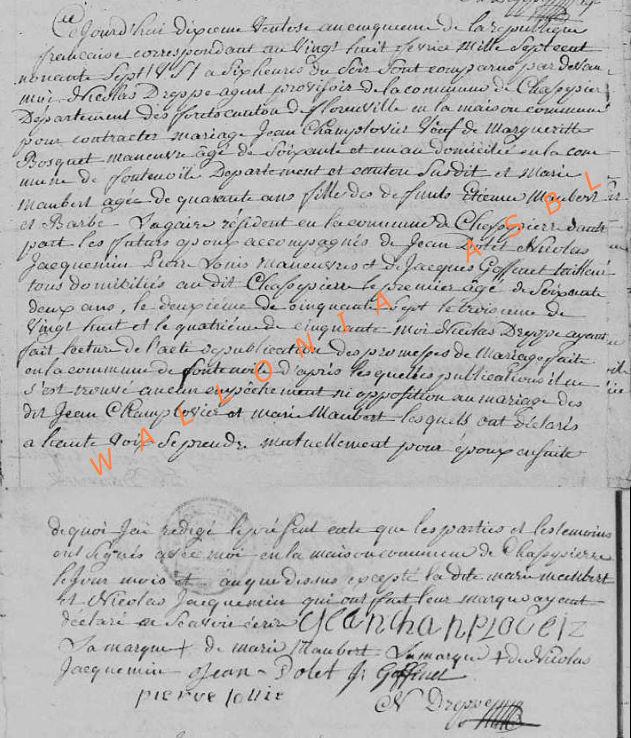 Cejourd'hui dixieme Ventose an cinquieme de la republique
francaise correspondant au Vingt huit fevrie Mille Sept cent
nonante Sept a Six heures du Soir Sont comparus par devan
moi Nicolas Dreppe agent provisoir de la commune de Chassepier
Departement des forets canton de florenville en la maison commune
pour contracter mariage Jean Champlovier Veuf de Margueritte
Bosquet maneuvre âgé de Soixante et un an domicilié en la com
mune de fontenoile Departement et canton Susdit et Marie
Maubert agee de quarante ans fille des defunts Etienne Maubert
et Barbe Lagaire résident en la commune de Chassepierre dautre
part les futurs epoux accompagnés de Jean Dolet Nicolas
Jacquemin Pierre Louis maneuvres et de Jacques Goffinet tailleur
tous domiciliés au dit Chassepierre le premier âgé de Soixante
deux ans, le deuxieme de cinquante Sept le troisieme de
Vingt huit et le quatrième de cinquante moi Nicolas Dreppe ayant
fait lecture de l'acte de publication des promesses de Mariage faite
en la commune de fontenoile d'après les quelles publications il ne
s'est trouvé aucun empêchement ni opposition au mariage des
dit Jean Champlovier et marie Maubert lesquels ont déclarés
a haute Voix Se prendre mutuellement pour époux ensuite
de quoi Jai redigé le présent acte que les parties et les temoins
ont Signés avec moi en la maison commune de Chassepierre
le Jour mois et an que dessus excepté la dite marie maubert
et Nicolas Jacquemin qui ont fait leur marque ayant
déclaré ne Savoir écrire
La marque + de marie Maubert La marque + de Nicolas
Jacquemin Jean Dolet J. Goffinet
pierre
N Dreppe
WALLONIA ASBL